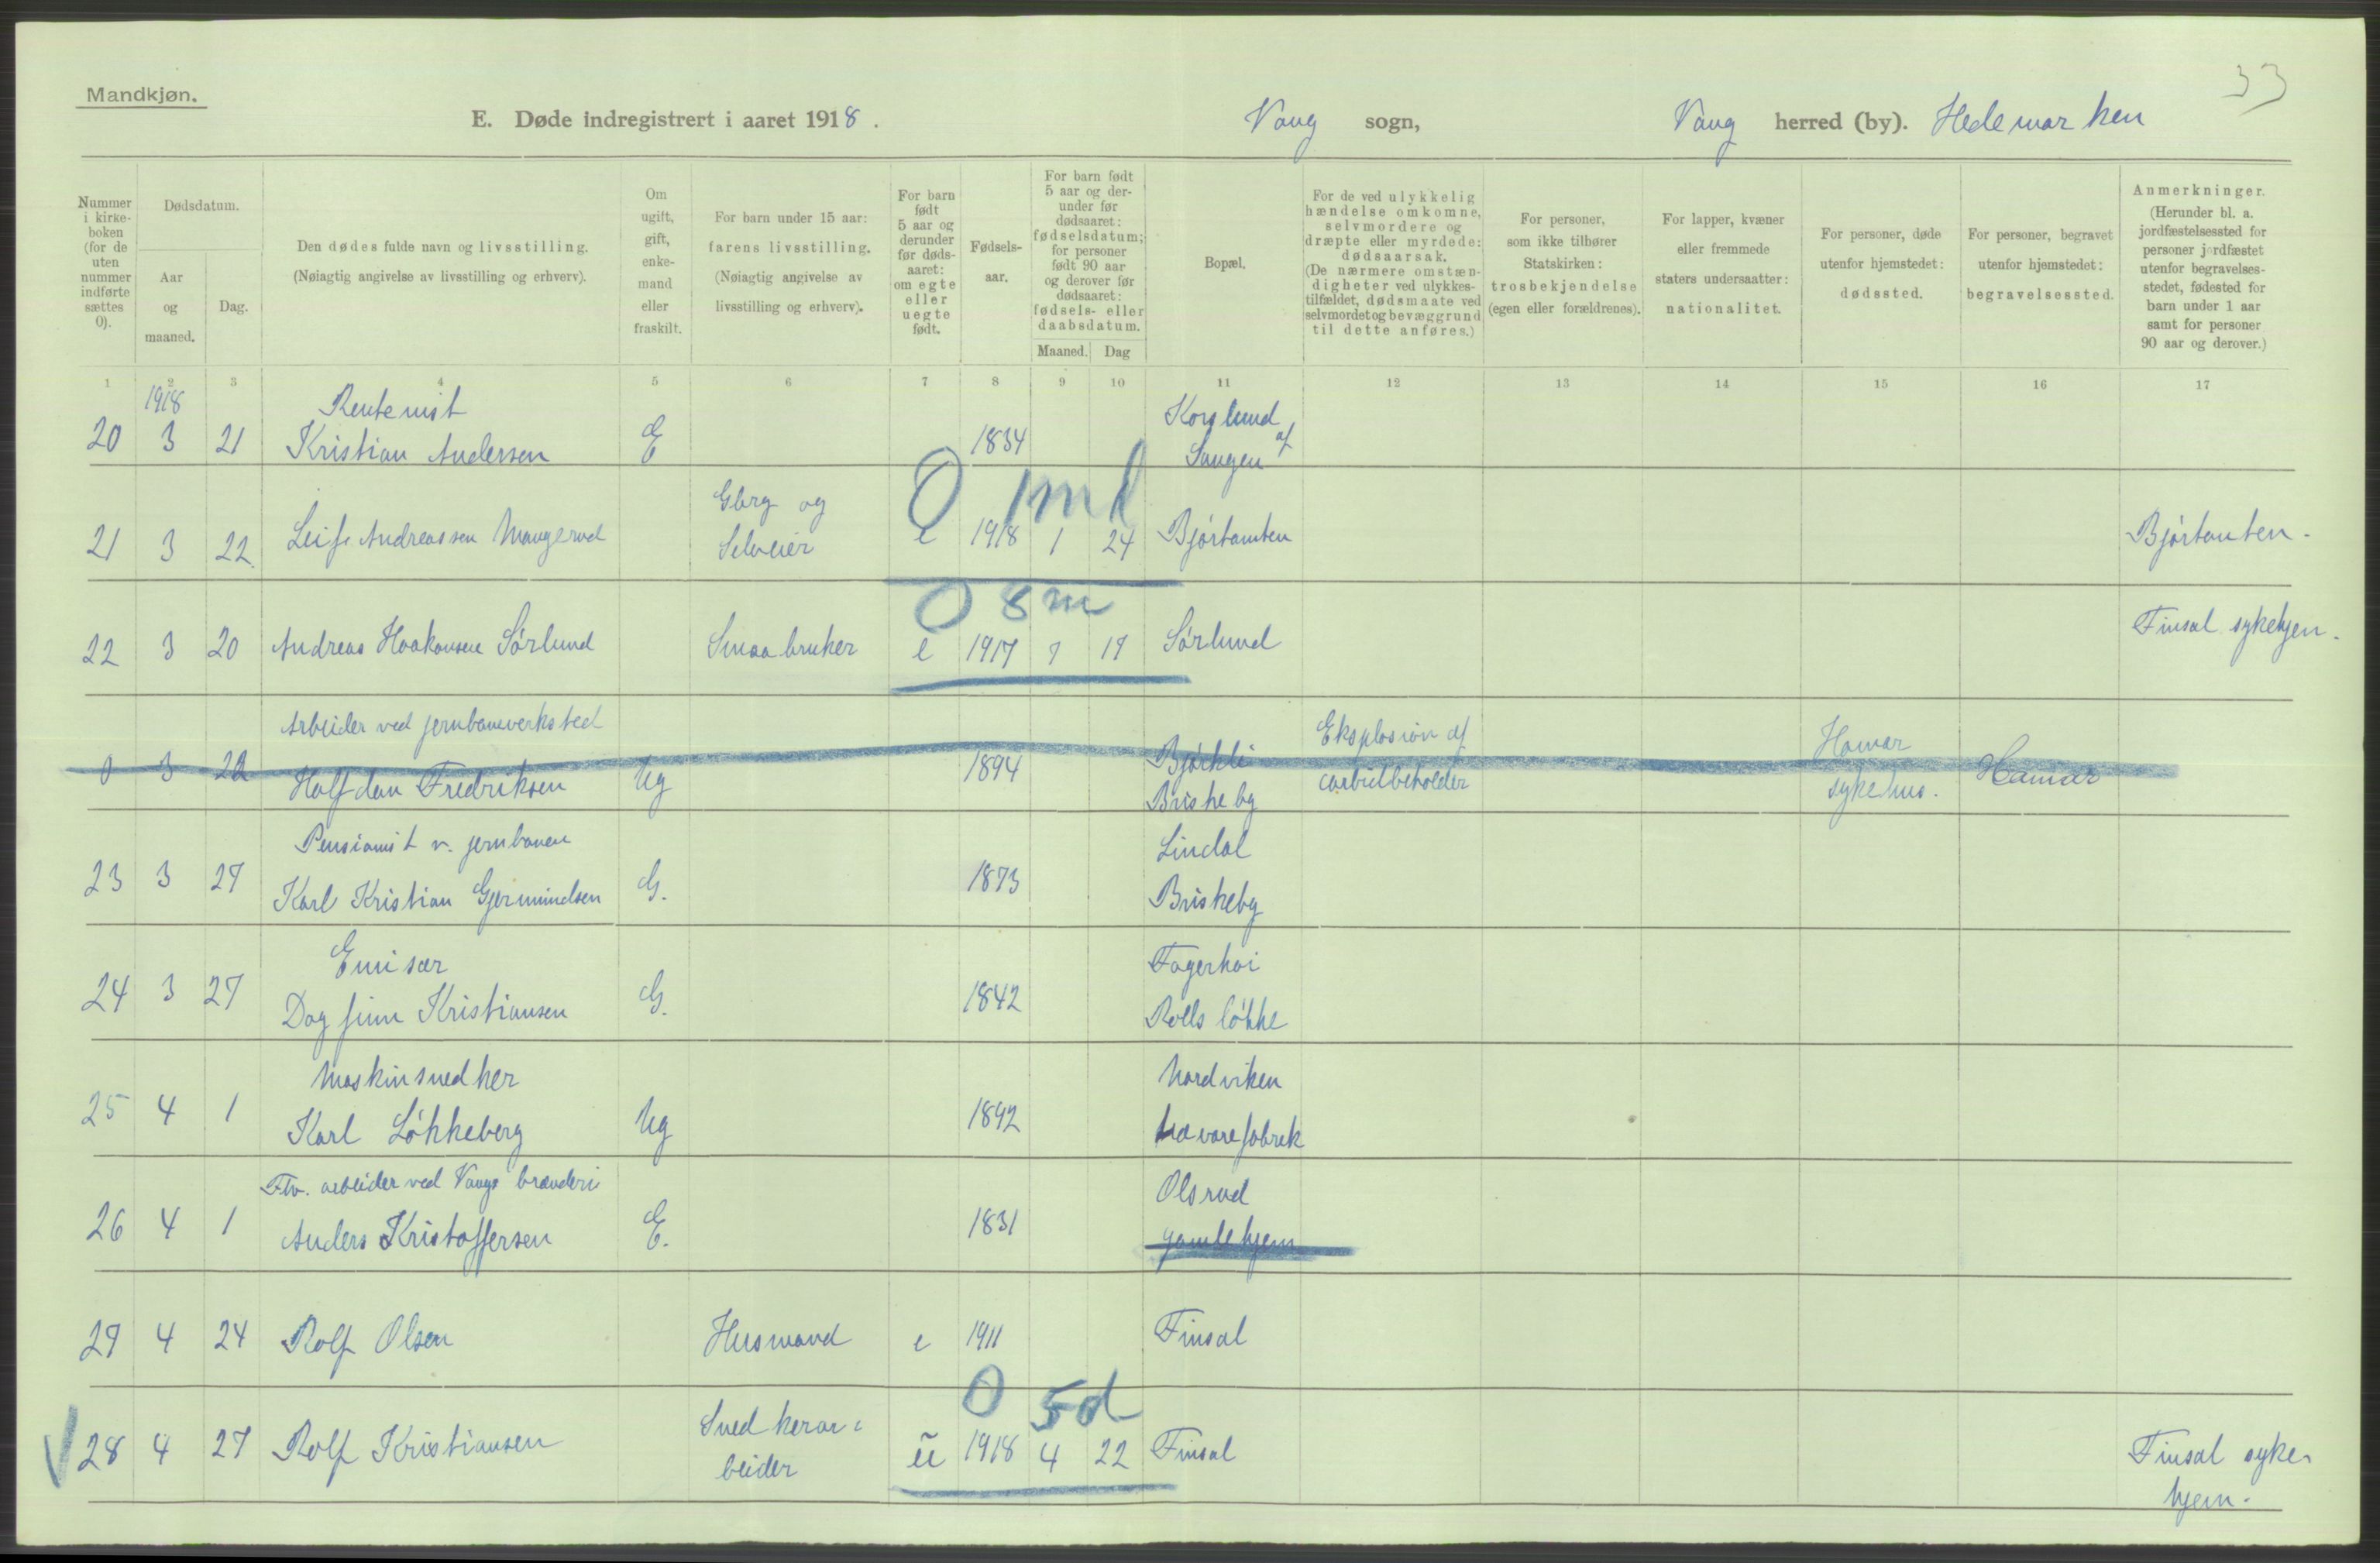 33
Mandkjøn.
E. Døde indregistrert i aaret 1918. Vang sogn, Vang herred (by). Hedemarken
Nummer i kirke- boken (for de uten nummer indførte sættes 0).
Dødsdatum.
Aar og maaned.
Dag.
Den dødes fulde navn og livsstilling.
(Nøiagtig angivelse av livsstilling og erhverv).
Om ugift, gift, enke- mand eller fraskilt.
For barn under 15 aar: farens livsstilling.
(Nøiagtig angivelse av livsstilling og erhverv).
For barn født 5 aar og derunder før døds- aaret: om egte eller uegte født.
Fødsels- aar.
For barn født 5 aar og der- under før dødsaaret: fødselsdatum; for personer født 90 aar og derover før dødsaaret: fødsels- eller daabsdatum.
Maaned. Dag
Bopæl.
For de ved ulykkelig hændelse omkomne, selvmordere og dræpte eller myrdede: dødsaarsak.
(De nærmere omstæn- digheter ved ulykkes- tilfældet, dødsmaate ved selvmordet og bevæggrund til dette anføres.)
For personer, som ikke tilhører Statskirken: trosbekjendelse (egen eller forældrenes).
For lapper, kvæner eller fremmede staters undersaatter: nationalitet.
For personer, døde utenfor hjemstedet: dødssted.
For personer, begravet utenfor hjemstedet: begravelsessted.
Anmerkninger.
(Herunder bl. a. jordfæstelsessted for personer jordfæstet utenfor begravelses- stedet, fødested for barn under 1 aar samt for personer 90 aar og derover.)
1 2 3 4 5 6 7 8 9 10 11 12 13 14 15 16 17
1918 Rentenist Korslund
20 3 21 Kristian Andersen E 1834 af Saugen
Gbrg og 0 1 md
21 3 22 Leif Andreassen Maugerud Selveier e 1918 1 24 Bjørtomten Bjørtomten.
0 8 m
22 3 20 Andreas Haakonsen Sørlund Smaabruker e 1917 7 19 Sørlund Finsal sykehjem.
Arbeider ved jernbaneverksted Bjørkli Eksplosion af Hamar
0 3 22 Halfdan Fredriksen Ug 1894 Briskeby carbidbeholder sykehus. Hamar
Pensionist v. jernbanen Lindal
23 3 27 Karl Kristian Gjermundsen G. 1873 Briskeby
Emisær Fagerhøi
24 3 27 Dagfinn Kristiansen G. 1842 Rolls løkke
Maskinsnedker Nordviken
25 4 1 Karl Løkkeberg Ug 1892 trævarefabrik
Fhv. arbeider ved Vangs brænderi Olsrud
26 4 1 Anders Kristoffersen E. 1831 gamlehjem
27 4 24 Rolf Olsen Husmand e 1911 Finsal
0 5 d
Snedkerar-
V 28 4 27 Rolf Kristiansen beider u 1918 4 22 Finsal Finsal syke-
hjem.